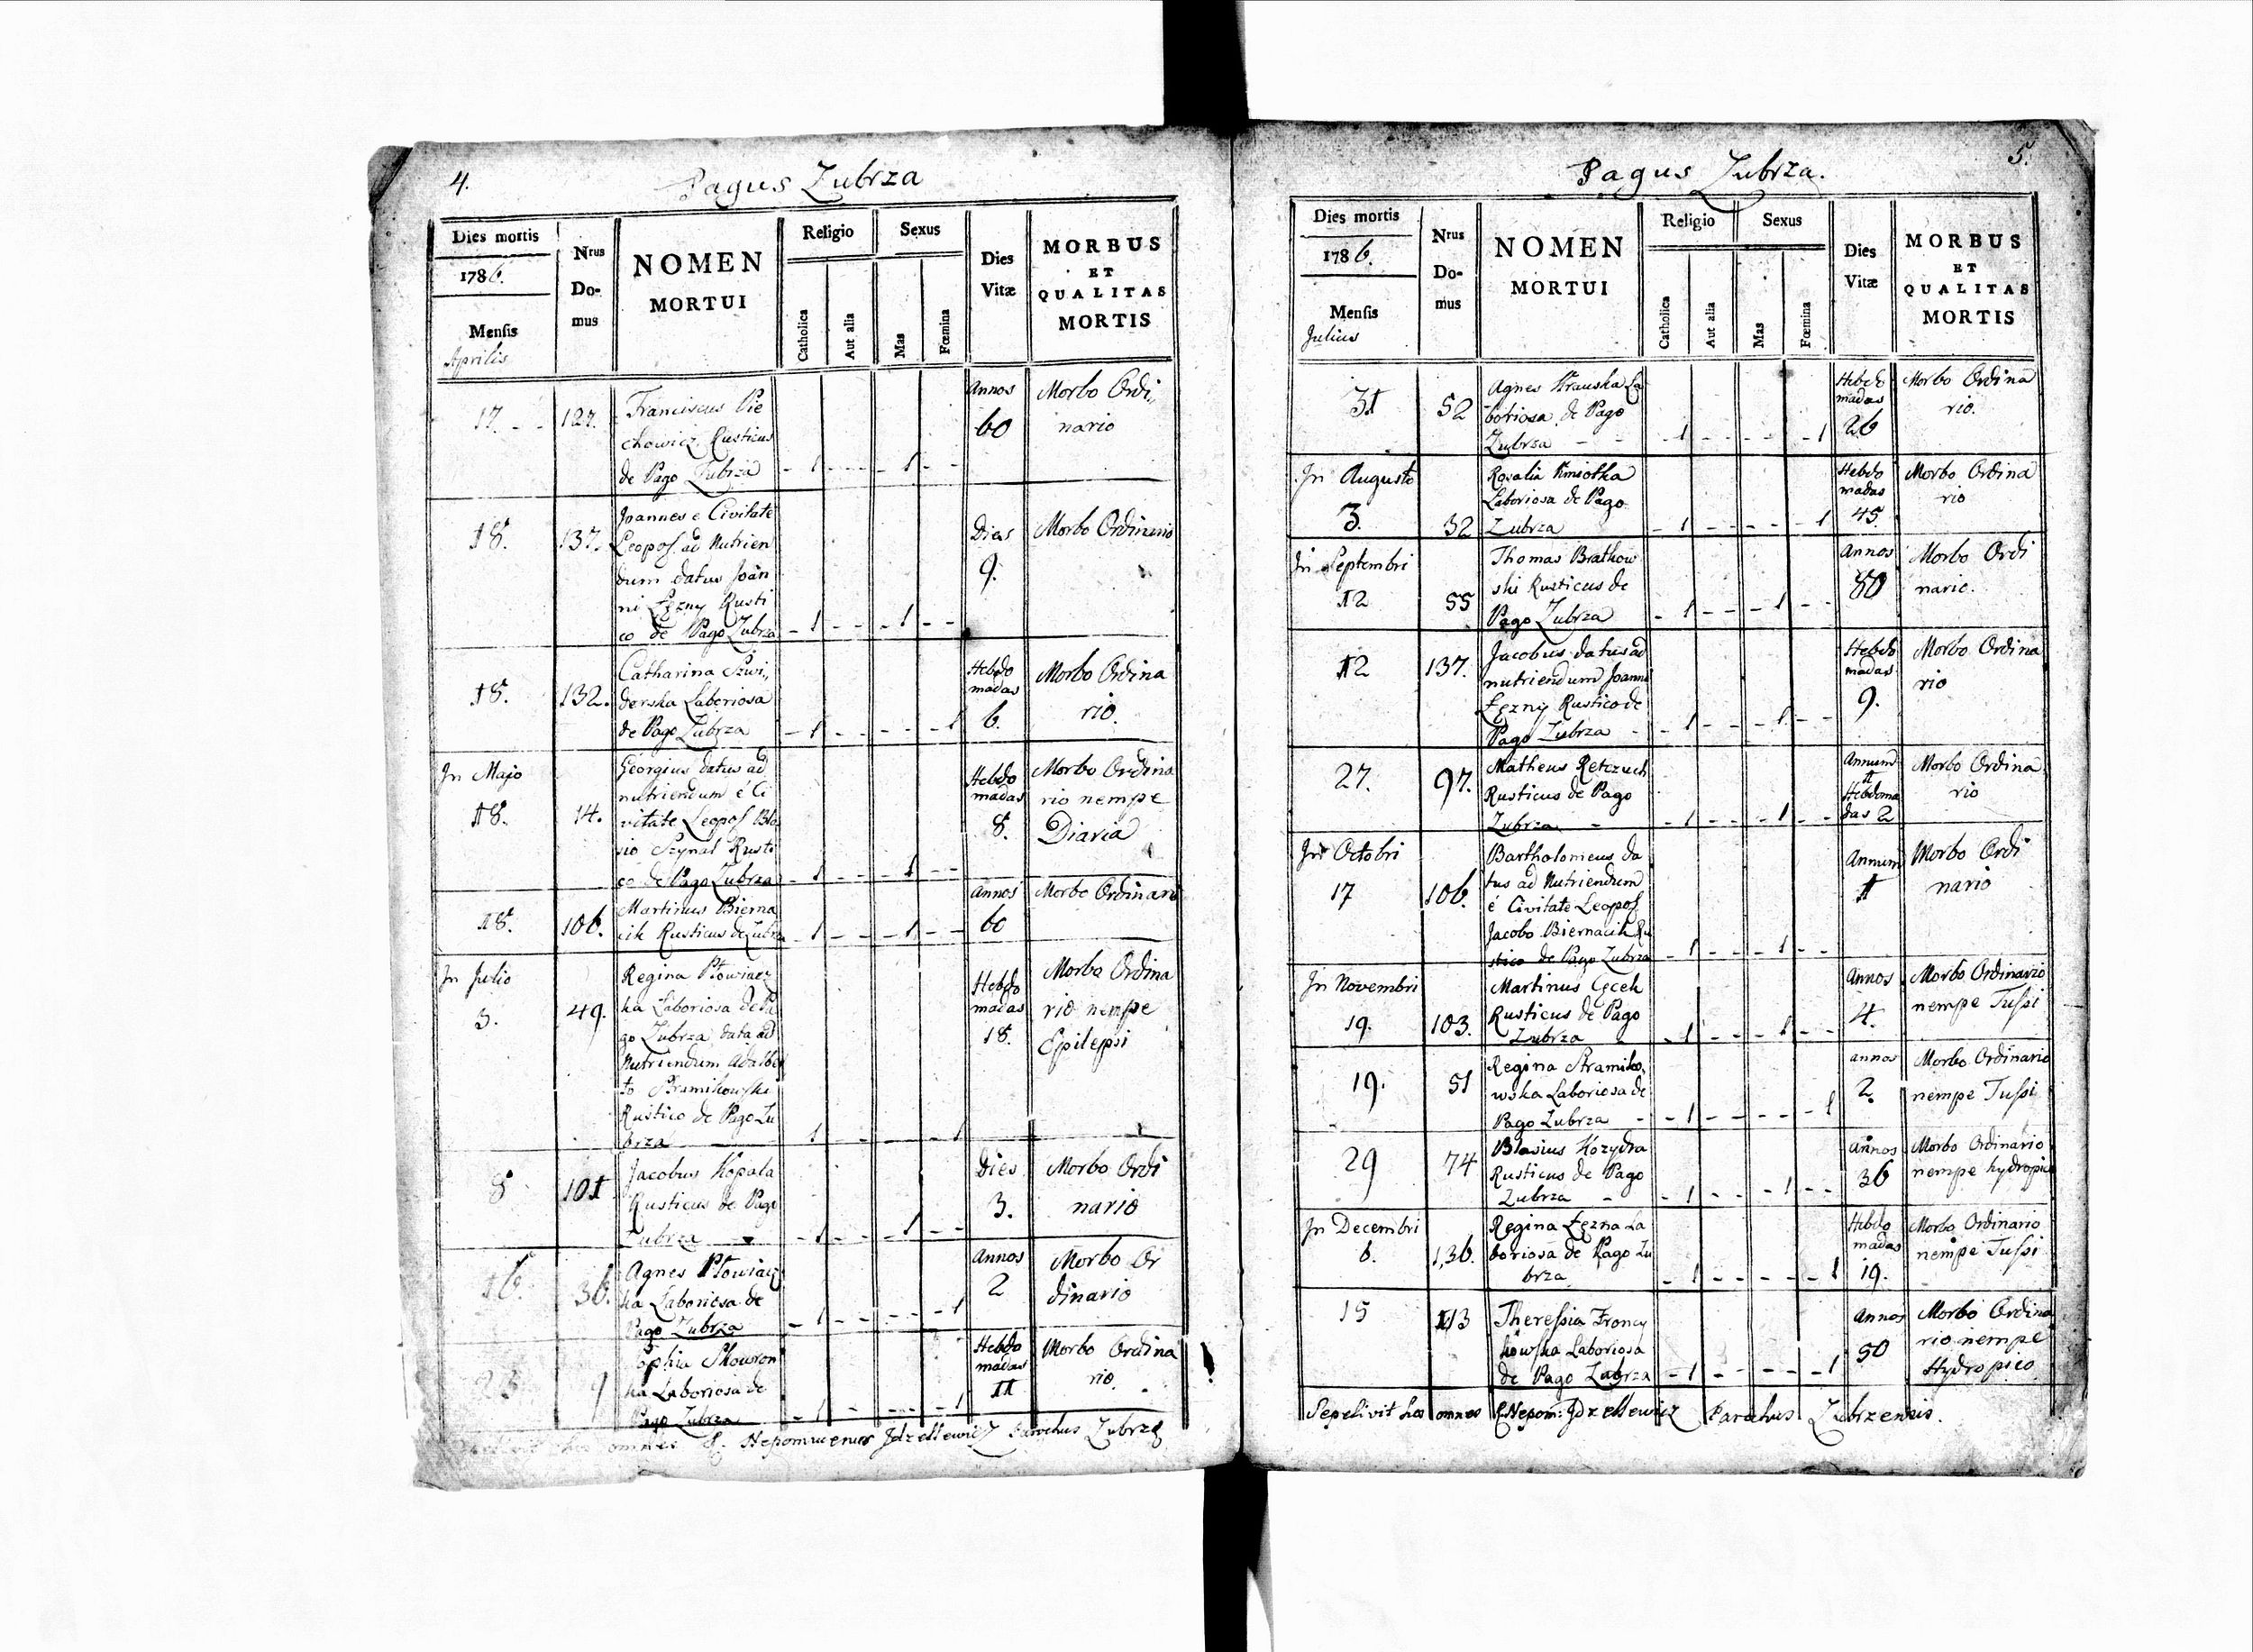 4.
Pagus Zubrza
Dies mortis
1786.
Mensis
Aprilis
Nrus
Do-
mus
NOMEN
MORTUI
Religio
Catholica
Aut alia
Sexus
Mas
Fœmina
Dies
Vitæ
MORBUS
ET
QUALITAS
MORTIS
17. 127. Franciscus Pie
chowicz Rusticus
de Pago Zubrza - 1 - - - 1 - -
Annos
60
Morbo Ordi,,
nario
18. 137. Joannes e Civitate
Leopol. ad Nutrien
dum datus Joan
ni Łęzny Rusti
co de Pago Zubrza - 1 - - - 1 - -
Dies
9.
Morbo Ordinario
18. 132. Catharina Szwi,,
derska Laboriosa
de Pago Zubrza - 1 - - - - - 1
Hebdo
madas
6.
Morbo Ordina
rio.
In Majo
18. 14. Georgius datus ad
nutriendum é Ci
vitate Leopol Bla
sio Szynal Rusti
co de Pago Zubrza - 1 - - - 1 - -
Hebdo
madas
8.
Morbo Ordina
rio nempe
Diaria
18. 106. Martinus Bierna
cik Rusticus de Zubrza - 1 - - - 1 - -
Annos
60
Morbo Ordinari
In Julio
3. 49. Regina Płowiacz
ka Laboriosa de Pa
go Zubrza data ad
Nutriendum Adalber
to
Rustico de Pago Zu
brza 1 - - 1
Hebdo
madas
18.
Morbo Ordina
rio nempe
Epilepsi
8 101 Jacobus Kopala
Rusticus de Pago
Zubrza - 1 - - - 1 - -
Dies
3.
Morbo Ordi
nario
16. 36. Agnes Płowiacz
ka Laboriosa de
Pago Zubrza - 1 - - - - - 1
Annos
2
Morbo Or
dinario
23 9 Sophia Skowron
ka Laboriosa de
Pago Zubrza - 1 - - - - 1
Hebdo
madas
11
Morbo Ordina
rio.
hos omnes Nepomucenus Idzellewicz Parochus Zubrza
5.
Pagus Zubrza.
Dies mortis
1786.
Mensis
Julius
Nrus
Do-
mus
NOMEN
MORTUI
Religio
Catholica
Aut alia
Sexus
Mas
Fœmina
Dies
Vitæ
MORBUS
ET
QUALITAS
MORTIS
31 52 Agnes Krauska La
boriosa de Pago
Zubrza - - - 1 - - - - - 1
Hebdo
madas
26
Morbo Ordina
rio.
In Augusto
3. 32 Rosalia Kmiotka
Laboriosa de Pago
Zubrza - 1 - - - - - 1
Hebdo
madas
45
Morbo Ordina
rio
In Septembri
12 55 Thomas Bratkow
ski Rusticus de
Pago Zubrza - 1 - - - 1 - -
Annos
80
Morbo Ordi
nario.
12 137. Jacobus datus ad
nutriendum Joanni
Łęzny Rustico de
Pago Zubrza - - 1 - - - 1 - -
Hebdo
madas
9.
Morbo Ordina
rio
27. 97. Matheus Retczuch
Rusticus de Pago
Zubrza - - 1 - - - 1 - -
Annum
1
Hebdoma
das 2
Morbo Ordina
rio
In Octobri
17 106. Bartholomeus da
tus ad Nutriendum
é Civitate Leopol
Jacobo Biernacik Ru
stico de Pago Zubrza - 1 - - - 1 - -
Annum
1
Morbo Ordi
nario
In Novembri
19. 103. Martinus Gęcek
Rusticus de Pago
Zubrza - - 1 - - - 1 - -
Annos
4.
Morbo Ordinario
nempe Tussi
19. 51 Regina Stramiko,
wska Laboriosa de
Pago Zubrza - - 1 - - - - - 1
annos
2.
Morbo Ordinario
nempe Tussi
29 74 Blasius Kozydra
Rusticus de Pago
Zubrza - - 1 - - - 1 - -
Annos
36
Morbo Ordinario
nempe hydropico
In Decembri
6. 136. Regina Łęzna La
boriosa de Pago Zu
brza - 1 - - - - - 1
Hebdo
madas
19.
Morbo Ordinario
nempe Tussi
15 113 Theressia Froncy
kowska Laboriosa
de Pago Zubrza - 1 - - - - 1
Annos
50
Morbo Ordina
rio nempe
Hydropico
Sepelivit hos omnes Nepom: Idzellewicz Parochus Zubrzensis.